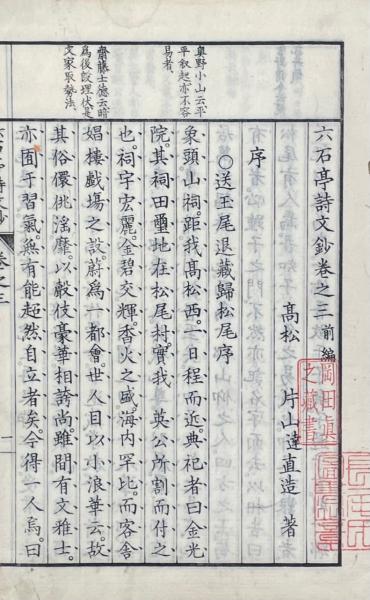 六石亭詩文鈔卷之三 前編
高松 片山達直造 著
序
○送玉尾退藏歸松尾序
象頭山祠。距我高松西。一日程而近。典祀者曰金光
院。其祠田璽地在松尾村。實我 英公所割而付之
也。祠宇宏麗。金碧交輝。香火之盛。海内罕比。而客舍
娼樓戲場之設。蔚爲一都會。世人目以小浪華云。故
其俗儇佻淫靡。以戲伎豪華相誇尚。雖間有文雅士。
亦囿于習氣。無有能超然自立者矣。今得一人焉。曰
奥野小山云平
平叙起亦不容
易者。
齋藤士德云暗
爲後段埋伏是
文家取勢法。
岡田眞
之藏書